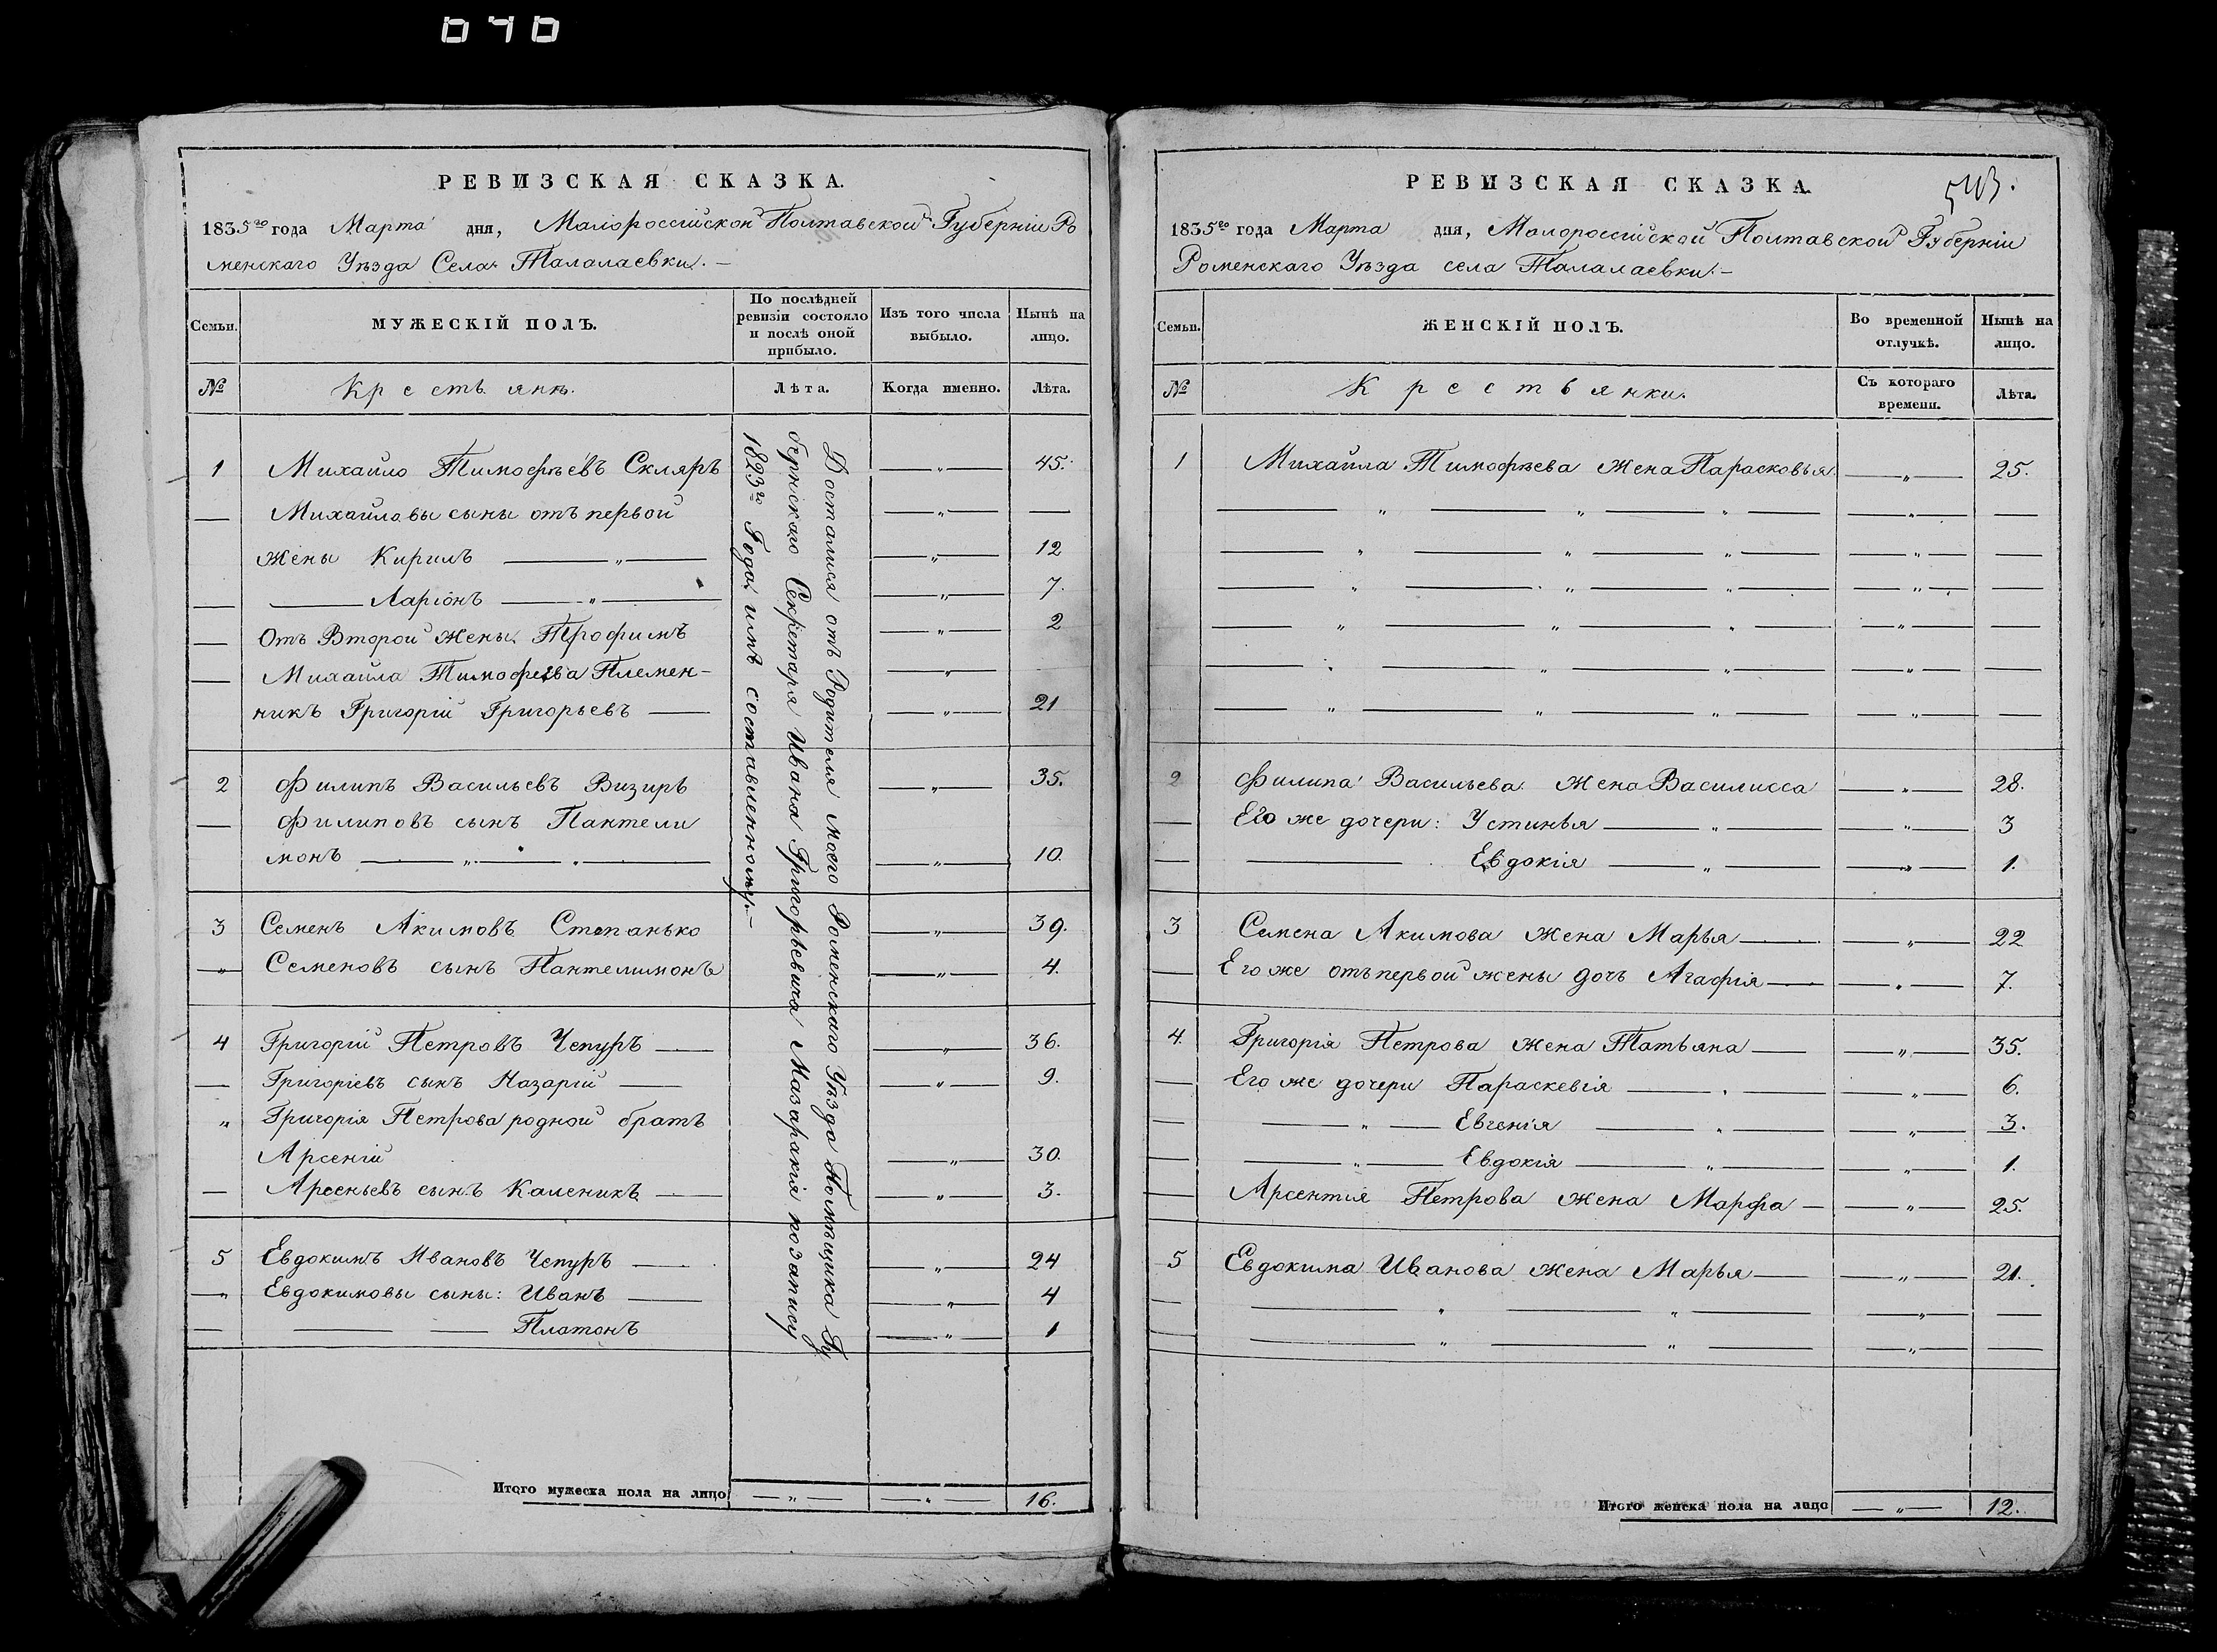 040
РЕВИЗСКАЯ СКАЗКА.
1835го года Марта дня, Малороссійской Полтавской Губерніи Ро
менскаго Уѣзда Села Талалаевки. —
Семьи.
МУЖЕСКІЙ ПОЛЪ.
По послѣдней ревизіи состояло и послѣ оной прибыло.
Изъ того числа выбыло.
Нынѣ на лицо.
№
Крестьянѣ.
Лѣта.
Когда именно.
Лѣта.
1 Михайло Тимофѣевъ Скляръ — „ — 45.
— Михайловы сыны отъ первой — „ — —
жены Кирилъ — „ — — „ — 12
— — Ларіонъ — „ — — „ — 7.
— Отъ Второй жены Трофимъ — „ — 2
— Михайла Тимофеева Племен- — „ —
никъ Григорій Григорьевъ — — „ — 21
2 Филипъ Васильевъ Визирь — „ — 35.
— Филиповъ сынъ Пантели
монъ — „ — „ — — „ — 10.
3 Семенъ Акимовъ Степанько — „ — 39.
„ Семеновъ сынъ Пантелимонъ — „ — 4.
4 Григорій Петровъ Чепуръ — — „ — 36.
— Григоріевъ сынъ Назарій — — „ — 9.
„ Григорія Петрова родной братъ
Арсеній — „ — 30.
— Арсеньевъ сынъ Каленикъ — — „ — 3.
5 Евдокимъ Ивановъ Чепуръ — — „ — 24
„ Евдокимовы сыны: Иванъ — — „ — 4
— — — Платонъ — „ — 1
Досталися отъ Родителя моего Роменскаго Уѣзда Помѣщика Гу
бернскаго Секретаря Ивана Григорьевича Мазаракія по запису
1823го Года имъ составленному. —
Итого мужеска пола на лицо — „ — — „ — 16.
РЕВИЗСКАЯ СКАЗКА.
543.
1835го года Марта дня, Малороссійской Полтавской Губерніи
Роменскаго Уѣзда села Талалаевки. —
Семьи.
ЖЕНСКІЙ ПОЛЪ.
Во временной отлучкѣ.
Нынѣ на лицо.
№
Крестьянки.
Съ котораго времени.
Лѣта.
1 Михайла Тимофѣева жена Парасковья — „ — 25.
— „ — „ — „ — — „ — —
— „ — „ — „ — — „ — —
— „ — „ — „ — — „ — —
— „ — „ — „ — — „ — —
— „ — „ — „ — — „ — —
— „ — „ — „ — — „ — —
2 Филипа Васильева жена Василисса — „ — 28.
— Его же дочери: Устинья — „ — — „ — 3
— — Евдокія — „ — — „ — 1.
3 Семена Акимова жена Марья — — „ — 22
— Его же отъ первой жены дочь Агафія — — „ — 7.
4. Григорія Петрова жена Татьяна — — „ — 35.
— Его же дочери Параскевія — „ — — „ — 6.
— — „ — Евгенія — „ — — „ — 3.
— — „ — Евдокія — „ — — „ — 1.
— Арсентія Петрова жена Марфа — — „ — 25.
5 Евдокима Иванова жена Марья — — „ — 21.
— — „ — „ — — „ — —
— — „ — „ — — „ — —
Итого женска пола на лицо — „ — 12.